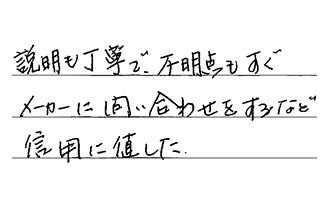 説明も丁寧で、不明点もすぐ
メーカーに問い合わせをするなど
信用に値した.